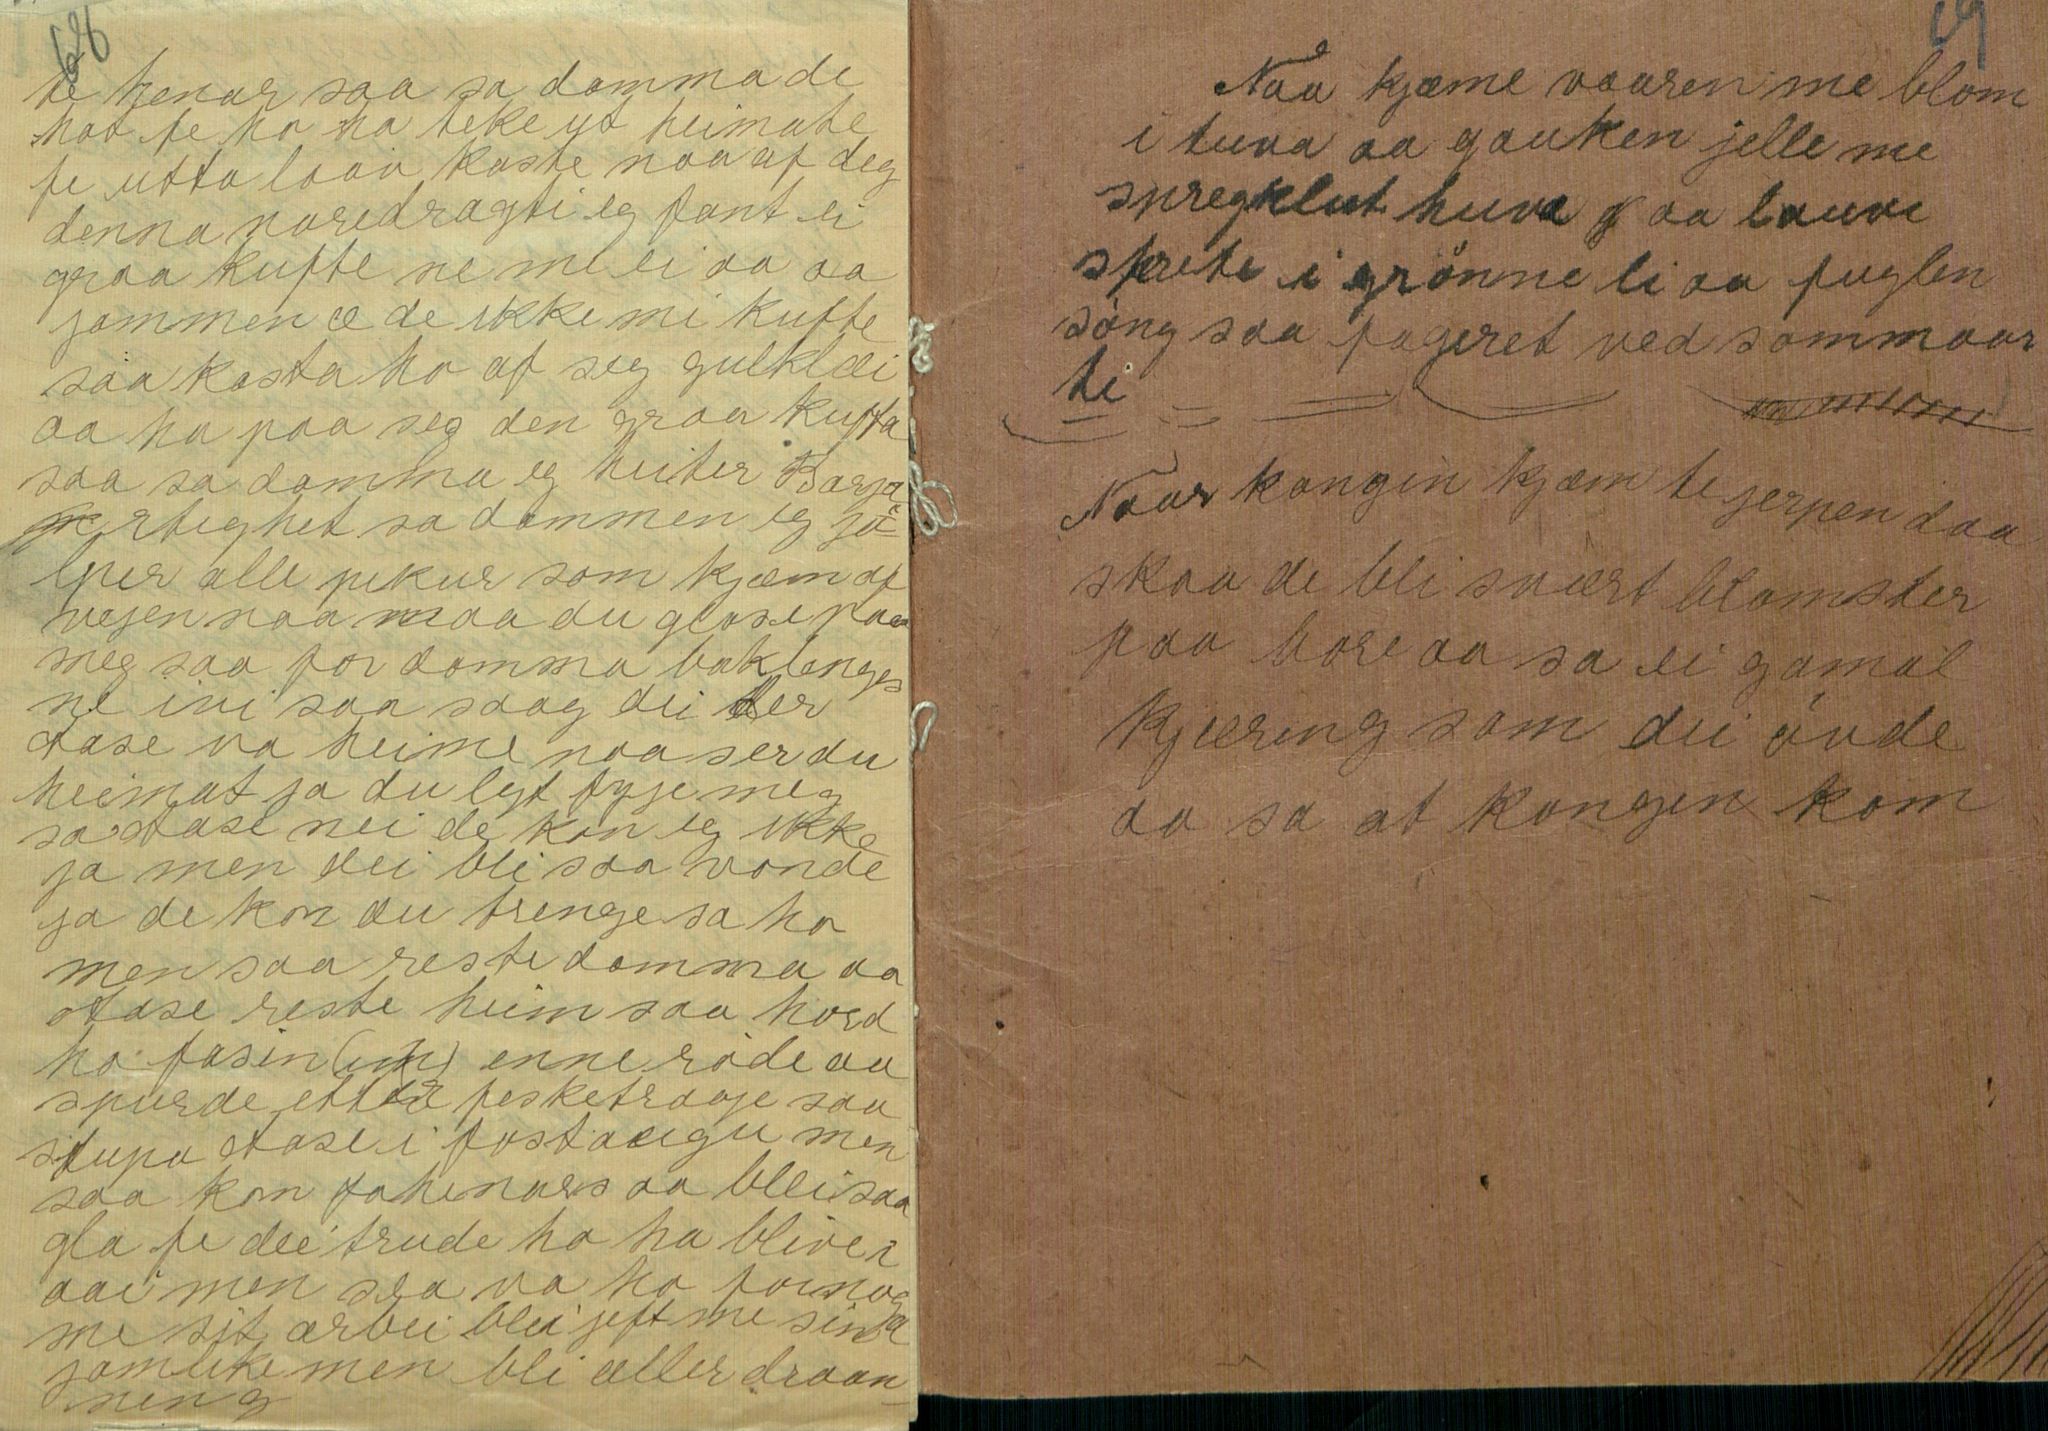 68
te henar saa sa damma de
hat fe ho ha teke ut heimate
fe utta laav kaste naa af deg
denna naredragti eg fant ei
graa kufte ne me ei aa aa
jammen æ de ikke mi kufte
saa kasta ho af seg gulklæi
aa ha paa seg den graa kufta
saa sa damma eg heiter Barja
rtighet sa dammen eg jö-
lper alle pikur som kjæm af
vejen naa maa du glose paa
meg saa for damma baklenges
ne ivi saa saag dei der
Aase va heime naa ser du
heimat ja du lyt fyje meg
sa Aase nei de kan eg ikke
ja men dei bli saa vonde
ja de kan du trenge sa ho
men saa reste damma aa
Aase reste heim saa hord
ho fasin enne röde aa
spurde etter fesketraaje saa
stupa Aase i
men
saa kom fahenars aa blei saa
gla fe dei trude ho ha blive i
aai men saa va ho fornog
me sit arbei blei jeft me sin ja
jamlike men bli aller draan-
neng
69
Naa kjæme vaaren me blom
i tuva aa gauken jelle me
spregklut huva aa lauve
sprete i grönne li aa fuglen
söng saa fageret ved sommaar
ti
Naar kongin kjæm te jerpen daa
skaa de bli svært blomster
paa bore aa sa ei gamal
kjæring som dei övde
aa sa at kongen kom